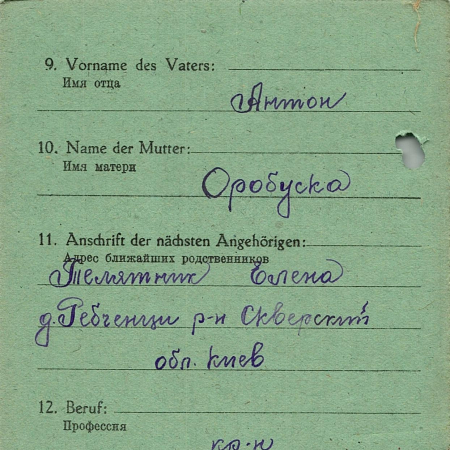 9. Vorname des Vaters:
Имя отца
Антон
10. Name der Mutter:
Имя матери
Оробуска
11. Anschrift der nächsten Angehörigen:
Адрес ближайших родственников
Телятник Елена
д. Ребченци р-н Скверский
обл. Киев
12. Beruf:
Профессия
кр-н